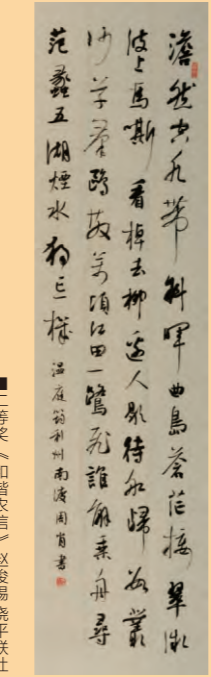 澹然空水带斜晖曲岛苍茫接翠微
波上马嘶看棹去柳边人歇待船归数丛
沙草群鸥散万顷江田一鹭飞谁解乘舟寻
范蠡五湖烟水独忘机
温庭筠利州南渡周肖书
■二等奖《和谐农信》赵俊锡 饶平联社